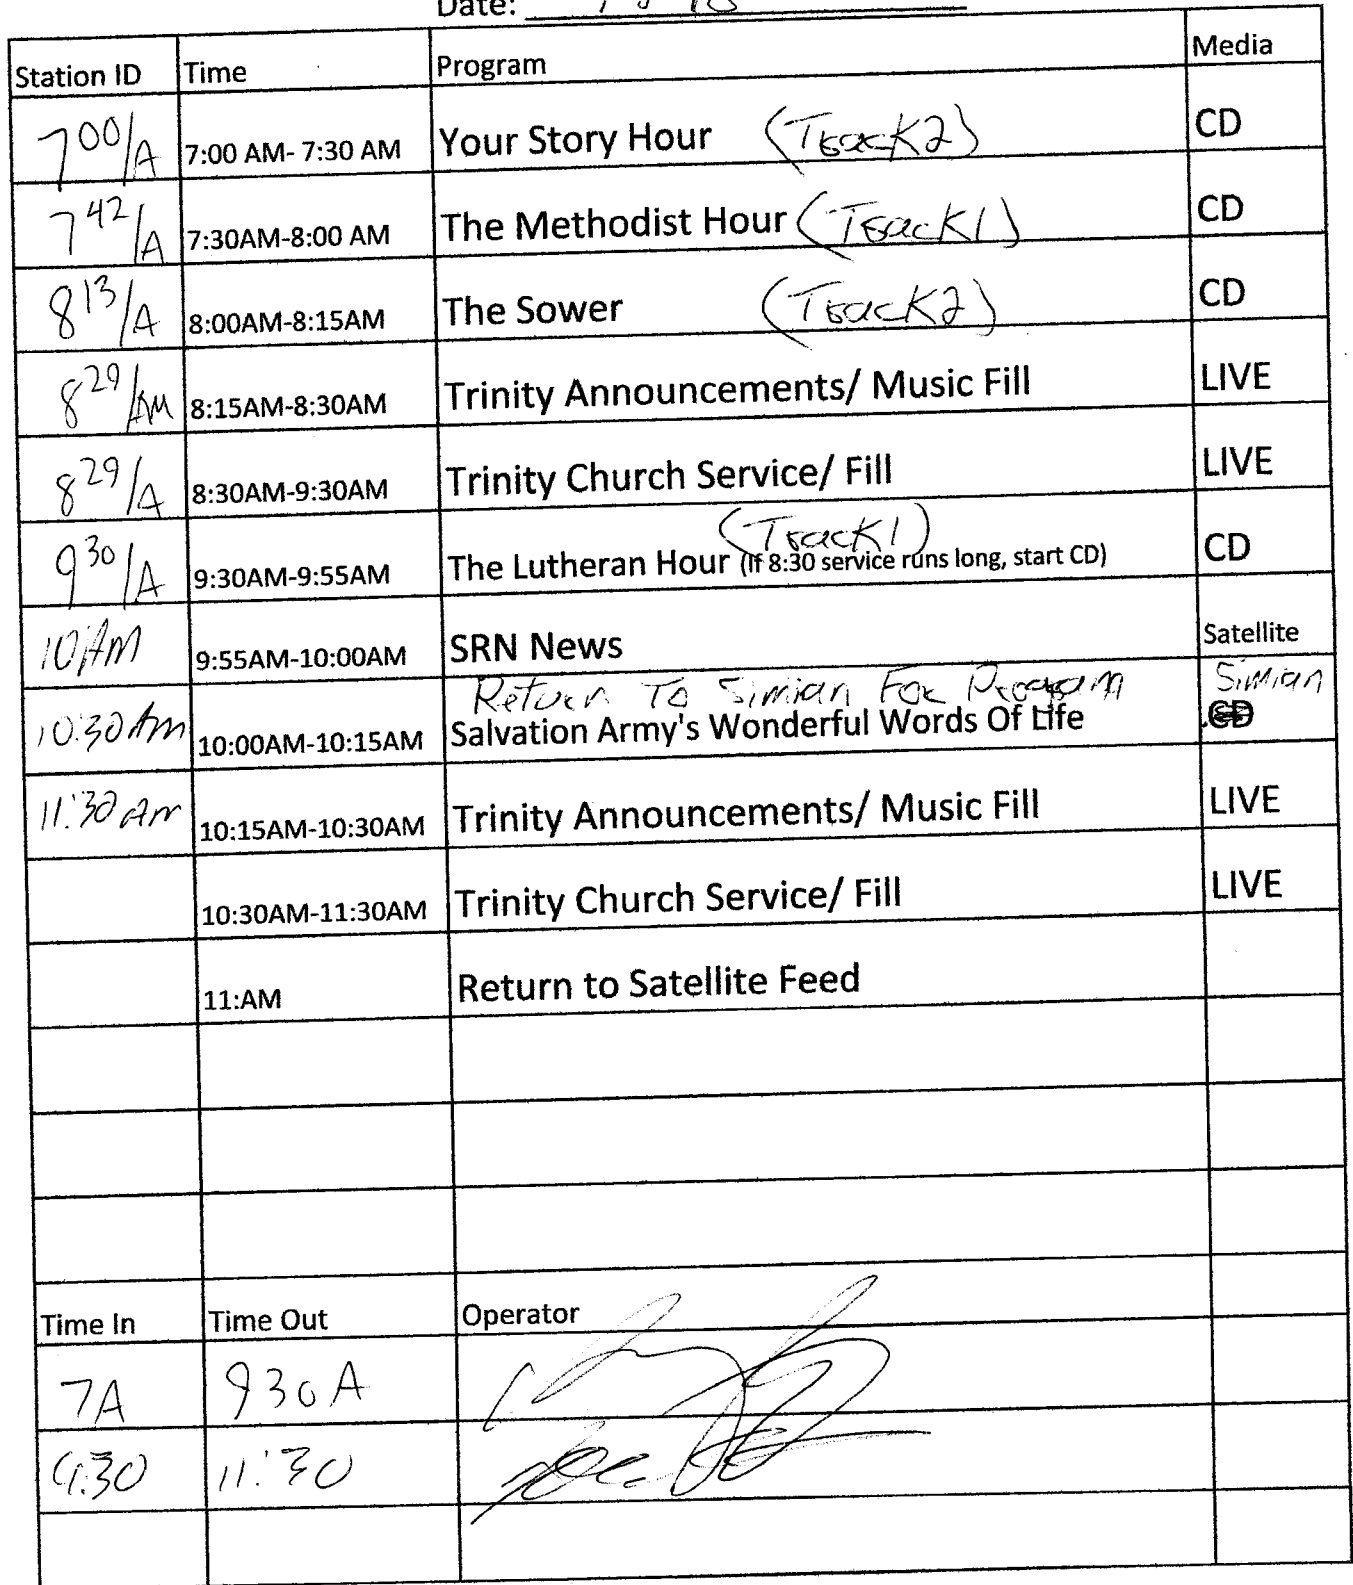 Date:
Station ID Time Program Media
7 00/A 7:00 AM- 7:30 AM Your Story Hour (Track2) CD
7 42/A 7:30AM-8:00 AM The Methodist Hour (Track1) CD
8 13/A 8:00AM-8:15AM The Sower (Track2) CD
8 29/AM 8:15AM-8:30AM Trinity Announcements/ Music Fill LIVE
8 29/A 8:30AM-9:30AM Trinity Church Service/ Fill LIVE
(Track1)
9 30/A 9:30AM-9:55AM The Lutheran Hour (If 8:30 service runs long, start CD) CD
10 AM 9:55AM-10:00AM SRN News Satellite
Return To Simian For Program Simian
10:30 Am 10:00AM-10:15AM Salvation Army's Wonderful Words Of Life CD
11:30 am 10:15AM-10:30AM Trinity Announcements/ Music Fill LIVE
10:30AM-11:30AM Trinity Church Service/ Fill LIVE
11:AM Return to Satellite Feed
Time In Time Out Operator
7A 930A
9:30 11:30